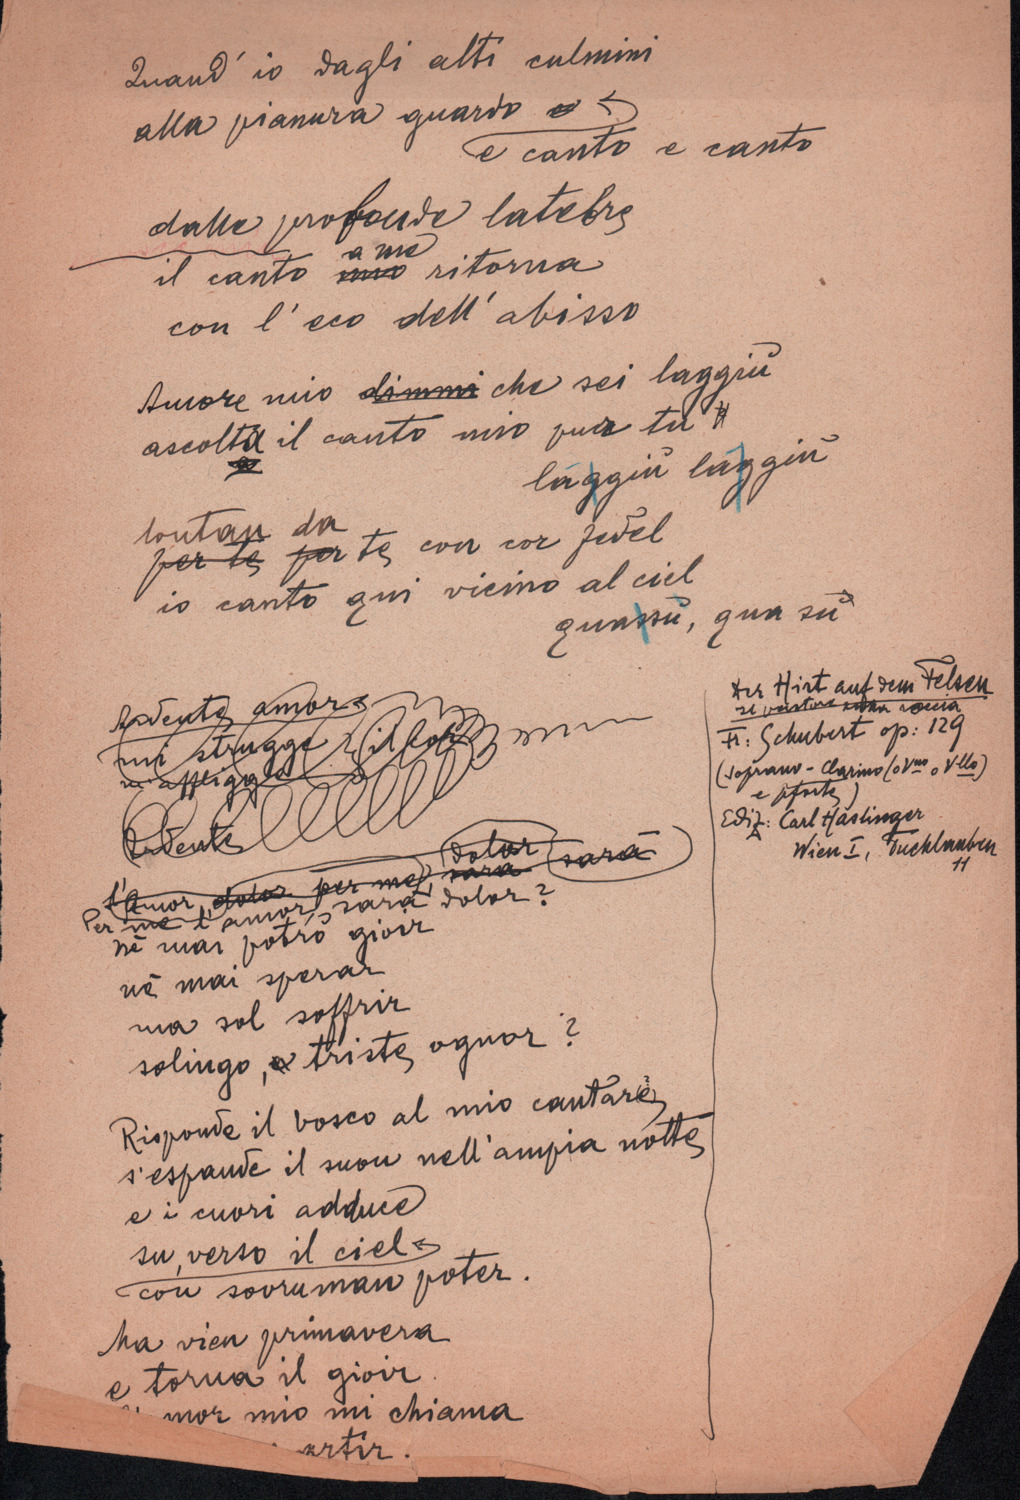 Quand' io dagli alti culmini
alla pianura guardo e
e canto e canto
dalle profonde latebre
a me
il canto mio ritorna
con l'eco dell'abisso
Amore mio dimmi che sei laggiù
ascolta il canto mio pur tu
laggiù laggiù
lontan da
per te per te con cor fedel
io canto qui vicino al ciel
quassù, qua sù
Ardente amore
mi strugge il cor
m'affligge
Ardente
dolor
l'Amor dolor per me, sarà sarà
Per me l'amor sarà dolor?
nè mai potrò gioir
nè mai sperar
ma sol soffrir
solingo, e triste ognor?
Risponde il bosco al mio cantare
s'espande il suon nell'ampia notte
e i cuori adduce
su, verso il ciel
con sovruman poter.
Ma vien primavera
e torna il gioir.
mor mio mi chiama
artir.
Der Hirt auf dem Felsen
il pastore sulla roccia
Fr: Schubert op: 129
(soprano - Clarino (o Vno, o Vllo)
e pforte)
Ediz: Carl Haslinger
Wien I, Tuchlauben
11